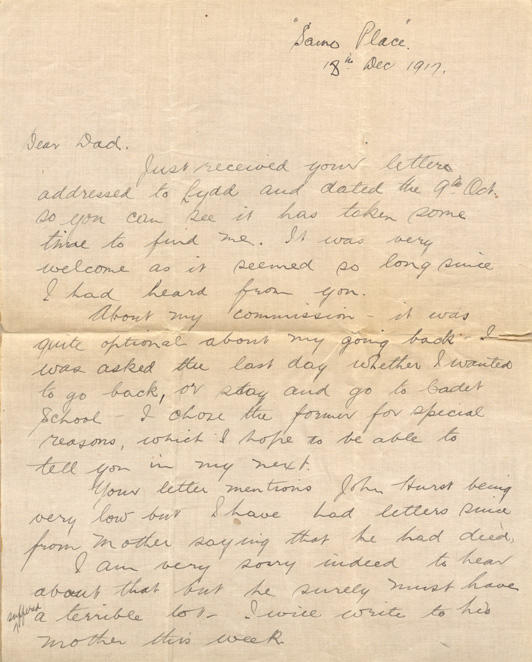 "Same Place".
18th Dec 1917.
Dear Dad.
Just received your letters
addressed to Lydd and dated the 9th Oct.
so you can see it has taken some
time to find me. It was very
welcome as it seemed so long since
I had heard from you.
About my commission - it was
quite optional about my going back - I
was asked the last day whether I wanted
to go back, or stay and go to Cadet
School - I chose the former for special
reasons, which I hope to be able to
tell you in my next.
Your letter mentions John Hurst being
very low but I have had letters since
from Mother saying that he had died.
I am very sorry indeed to hear
about that but he surely must have
suffered a terrible lot - I will write to his
mother this week.